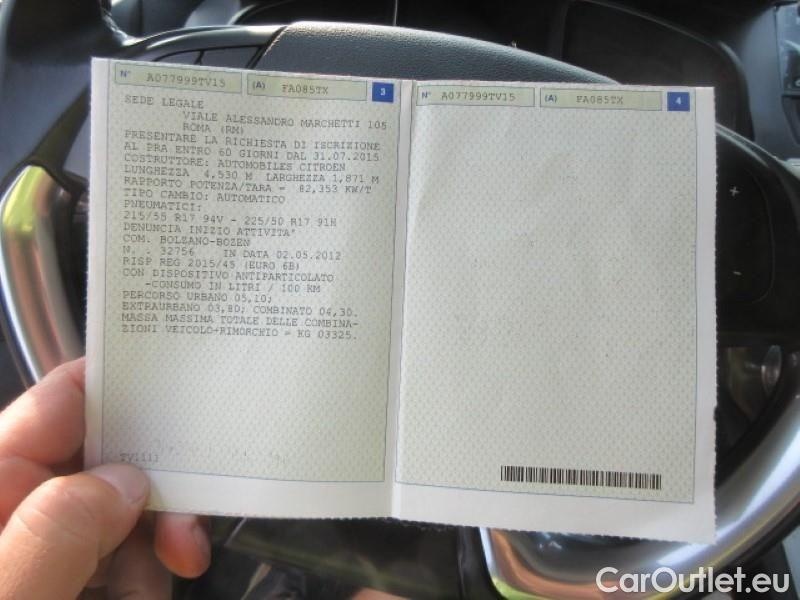 N° A077999TV15 (A) FA085TX 3
SEDE LEGALE
VIALE ALESSANDRO MARCHETTI 105
ROMA (RM)
PRESENTARE LA RICHIESTA DI ISCRIZIONE
AL PRA ENTRO 60 GIORNI DAL 31.07.2015
COSTRUTTORE: AUTOMOBILES CITROEN
LUNGHEZZA 4,530 M LARGHEZZA 1,871 M
RAPPORTO POTENZA/TARA = 82,353 KW/T
TIPO CAMBIO: AUTOMATICO
PNEUMATICI:
215/55 R17 94V - 225/50 R17 91H
DENUNCIA INIZIO ATTIVITA'
COM. BOLZANO-BOZEN
N. . 32756 IN DATA 02.05.2012
RISP REG 2015/45 (EURO 6B)
CON DISPOSITIVO ANTIPARTICOLATO
-CONSUMO IN LITRI / 100 KM
PERCORSO URBANO 05,10;
EXTRAURBANO 03,80; COMBINATO 04,30.
MASSA MASSIMA TOTALE DELLE COMBINA-
ZIONI VEICOLO+RIMORCHIO = KG 03325.
TV1111
N° A077999TV15 (A) FA085TX 4
CarOutlet.eu